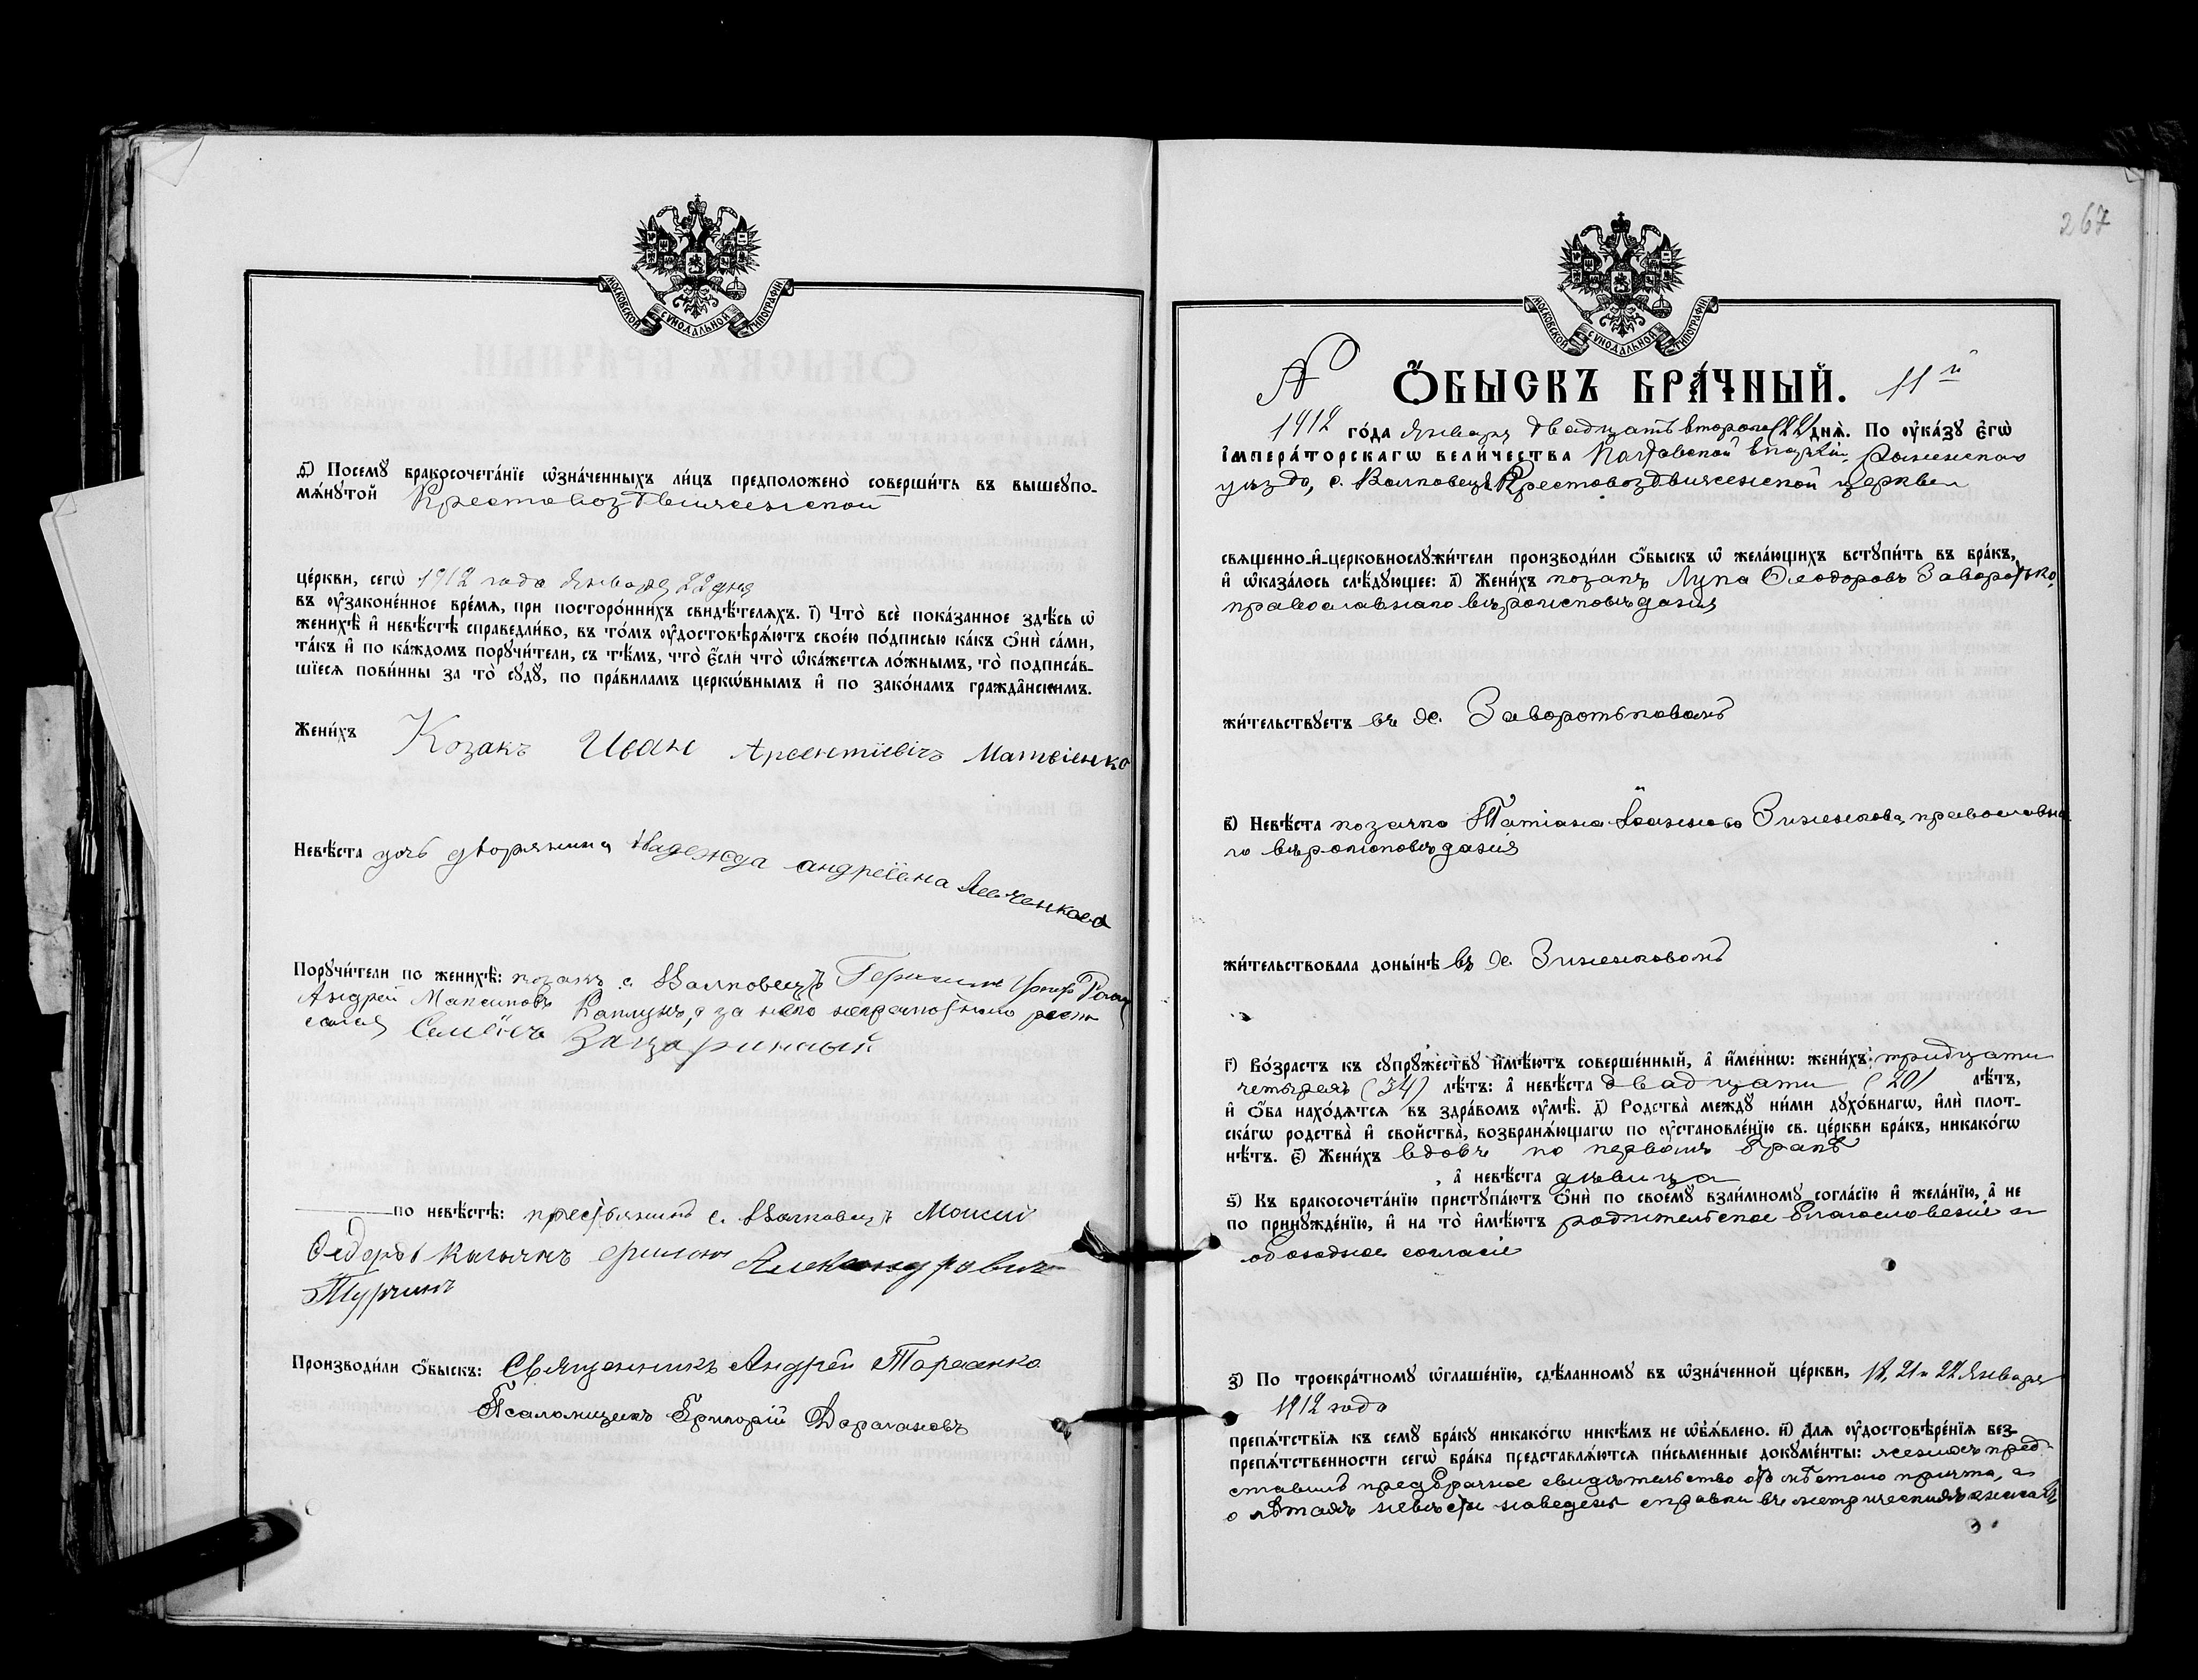 МОСКОВСКОЙ СѴНОДАЛЬНОЙ ТИПОГРАФІИ
ѳ҃) Посемꙋ̀ бракосочета́нїе ѡ҆зна́ченныхъ ли́цъ предположено̀ соверши́ть въ вышеꙋпо-
мѧ́нꙋтой Крестовоздвиженской
це́ркви, сегѡ̀ 1912 года Января 22 дня
въ ᲂу҆зако́ненное вре́мѧ, при посторо́ннихъ свидѣ́телѧхъ. і҃) Что̀ всѐ пока́занное здѣ́сь ѡ҆
женихѣ̀ и҆ невѣ́стѣ справедли́во, въ то́мъ ᲂу҆достовѣрѧ́ютъ свое́ю по́дписью ка́къ ѻ҆нѝ са́ми,
та́къ и҆ по ка́ждомъ порꙋчи́тели, съ тѣ́мъ, что̀ є҆́сли что̀ ѡ҆ка́жетсѧ ло́жнымъ, то̀ подписа́в-
шїесѧ пови́нны за то̀ сꙋдꙋ̀, по пра́виламъ церкѡ́внымъ и҆ по зако́намъ гражда̑нскимъ.
Жени́хъ Козакъ Иван Арсентiевiчъ Матвiенко
Невѣ́ста дочь дворянина Надежда андреiвна Левченкова
Порꙋчи́тели по женихѣ̀: козакъ с. Волковецъ Герасим
Андрей Максимовъ Каплунъ, а за него неграмотного роспи
сался Семёнъ
по невѣ́стѣ: крестьянинъ с. Волковецъ Моисей
Федоровъ Александровичъ
Турчинъ
Производи́ли ѻ҆́быскъ: Священникъ Андрей Тарасенко
Псаломщикъ Григорій Дарагановъ
267
МОСКОВСКОЙ СѴНОДАЛЬНОЙ ТИПОГРАФІИ
№ Ѻ҆́БЫСКЪ БРА́ЧНЫЙ. 11й
1912 го́да Января двадцать второго (22) днѧ̀. По ᲂу҆ка́зꙋ є҆гѡ̀
і҆мпера́торскагѡ вели́чества Полтавской епархіи, Роменскаго
уѣзда, с. Волковецъ Крестовоздвиженской церкви
свѧщенно-и҆-церковнослꙋжи́тели производи́ли ѻ҆́быскъ ѡ҆ жела́ющихъ встꙋпи́ть въ бра́къ,
и҆ ѡ҆каза́лось слѣ́дꙋющее: а҃) Жени́хъ козакъ Лука Ѳеодоровъ Заворотько,
православнаго вѣроисповѣданія
жи́тельствꙋетъ въ х. Заворотьковомъ
в҃) Невѣ́ста козачка Татіана Іоаннова Зиненкова, православна
го вѣроисповѣданія
жи́тельствовала доны́нѣ въ х. Зиненковомъ
г҃) Во́зрастъ къ сꙋпрꙋ́жествꙋ и҆мѣ́ютъ соверше́нный, а҆ и҆́меннѡ: жени́хъ тридцати
четырехъ (34) лѣ́тъ: а҆ невѣ́ста двадцати (20) лѣ́тъ,
и҆ ѻ҆́ба нахо́дѧтсѧ въ здра́вомъ ᲂу҆мѣ̀. д҃) Родства̀ междꙋ̀ ни́ми дꙋхо́внагѡ, и҆лѝ плот-
ска́гѡ родства̀ и҆ свойства̀, возбранѧ́ющагѡ по ᲂу҆становле́нїю св. це́ркви бра́къ, никако́гѡ
нѣ́тъ. є҃) Жени́хъ вдовъ по первомъ бракѣ
, а҆ невѣ́ста дѣвица
ѕ҃) Къ бракосочета́нїю пристꙋпа́ютъ ѻ҆нѝ по своемꙋ̀ взаи́мномꙋ согла́сїю и҆ жела́нїю, а҆ не
по принꙋжде́нїю, и҆ на то̀ и҆мѣ́ютъ родительское благословеніе и
обоюдное согласіе
з҃) По троекра́тномꙋ ѡ҆глаше́нїю, сдѣ́ланномꙋ въ ѡ҆зна́ченной це́ркви, 18, 21 и 22 Января
1912 года
препѧ́тствїѧ къ семꙋ̀ бра́кꙋ никако́гѡ никѣ́мъ не ѡ҆б̾ѧ́влено. и҃) Длѧ ᲂу҆достовѣре́нїѧ без-
препѧ́тственности сегѡ̀ бра́ка представлѧ́ютсѧ пи́сьменные докꙋме́нты: женихъ пред-
ставилъ предбрачное свидѣтельство отъ мѣстного причта, а
о лѣтахъ невѣсты наведены справки въ метрическихъ книгахъ